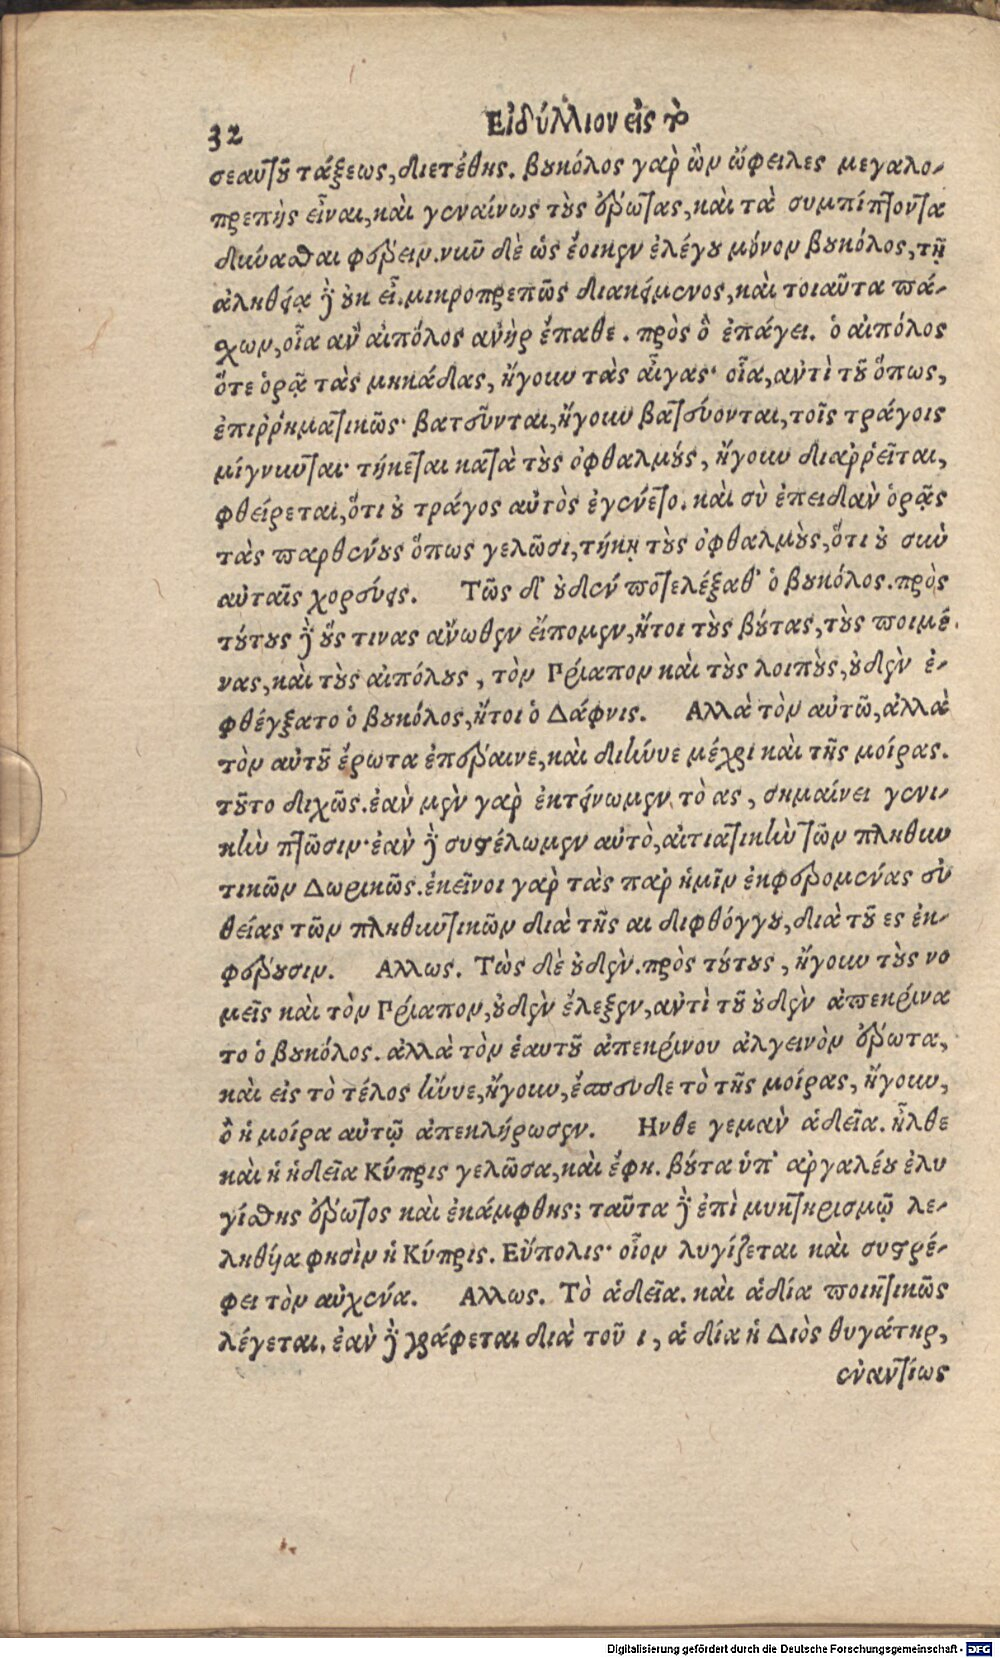 32
Εἰδύλλιον εἰς τὸ
σεαυτοῦ τάξεως, διετέθης. βουκόλος γὰρ ὢν ὤφειλες μεγαλο-
πρεπὴς εἶναι, καὶ γενναίως τοὺς ἔρωτας, καὶ τὰ συμπίπτοντα
δύνασθαι φέρειν. νῦν δὲ ὡς ἔοικεν ἐλέγου μόνον βουκόλος, τῇ
ἀληθείᾳ δὲ οὐκ εἶ. μικροπρεπῶς διακείμενος, καὶ τοιαῦτα πά-
χων, οἷα ἂν αἰπόλος ἀνὴρ ἔπαθε. πρὸς ὃ ἐπάγει. ὁ αἰπόλος
ὅτε ὁρᾷ τὰς μηκάδας, ἤγουν τὰς αἶγας· οἷα, ἀντὶ τοῦ ὅπως,
ἐπιῤῥηματικῶς· βατεῦνται, ἤγουν βατεύονται, τοῖς τράγοις
μίγνυνται· τήκεται κατὰ τοὺς ὀφθαλμούς, ἤγουν διαῤῥεῖται,
φθείρεται, ὅτι οὐ τράγος αὐτὸς ἐγένετο. καὶ σὺ ἐπειδὰν ὁρᾷς
τὰς παρθένους ὅπως γελῶσι, τήκῃ τοὺς ὀφθαλμοὺς, ὅτι οὐ σὺν
αὐταῖς χορεύεις. Τῶς δ' οὐδὲν ποτελέξαθ' ὁ βουκόλος. πρὸς
τούτους δὲ οὕς τινας ἄνωθεν εἴπομεν, ἤτοι τοὺς βούτας, τοὺς ποιμέ-
νας, καὶ τοὺς αἰπόλους, τὸν Πρίαπον καὶ τοὺς λοιποὺς, οὐδὲν ἐ-
φθέγξατο ὁ βουκόλος, ἤτοι ὁ Δάφνις. Αλλὰ τὸν αὐτῶ, ἀλλὰ
τὸν αὐτοῦ ἔρωτα ἐπέραινε, καὶ διήνυε μέχρι καὶ τῆς μοίρας.
τοῦτο διχῶς. ἐὰν μὲν γὰρ ἐκτείνωμεν τὸ ας, σημαίνει γενι-
κὴν πτῶσιν· ἐὰν δὲ συστέλωμεν αὐτὸ, αἰτιατικὴν τῶν πληθυν
τικῶν Δωρικῶς. ἐκεῖνοι γὰρ τὰς παρ' ἡμῖν ἐκφερομένας εὐ
θείας τῶν πληθυντικῶν διὰ τῆς αι διφθόγγου, διὰ τοῦ ες ἐκ-
φέρουσιν. Αλλως. Τὼς δὲ οὐδὲν. πρὸς τούτους, ἤγουν τοὺς νο
μεῖς καὶ τὸν Πρίαπον, οὐδὲν ἔλεξεν, ἀντὶ τοῦ οὐδὲν ἀπεκρίνα
το ὁ βουκόλος. ἀλλὰ τὸν ἑαυτοῦ ἀπεκρίνου ἀλγεινὸν ἔρωτα,
καὶ εἰς τὸ τέλος ἤνυε, ἤγουν, ἔσπευδε τὸ τῆς μοίρας, ἤγουν,
ὃ ἡ μοίρα αὐτῷ ἀπεκλήρωσεν. Ηνθε γεμὰν ἁδεῖα. ἦλθε
καὶ ἡ ἡδεῖα Κύπρις γελῶσα, καὶ ἔφη. βούτα ὑπ' ἀργαλέου ἐλυ
γίσθης ἔρωτος καὶ ἐκάμφθης; ταῦτα δὲ ἐπὶ μυκτηρισμῷ λε-
ληθυῖα φησὶν ἡ Κύπρις. Εὔπολις· οἷον λυγίζεται καὶ συστρέ-
φει τὸν αὐχένα. Αλλως. Τὸ ἁδεῖα. καὶ ἁδία ποιητικῶς
λέγεται. ἐὰν δὲ γράφεται διὰ τοῦ ι, ἁ δία ἡ Διὸς θυγάτηρ,
ἐναντίως
Digitalisierung gefördert durch die Deutsche Forschungsgemeinschaft - DFG